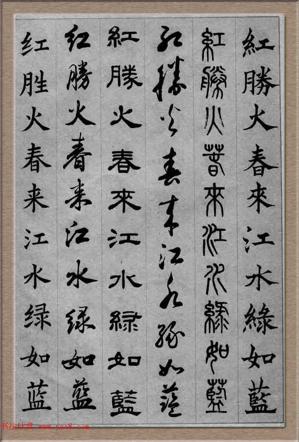 紅勝火春來江水綠如藍
紅勝火春來江水綠如藍
红勝火春来江水绿如蓝
紅勝火春來江水綠如藍
红勝火春来江水绿如蓝
红胜火春来江水绿如蓝